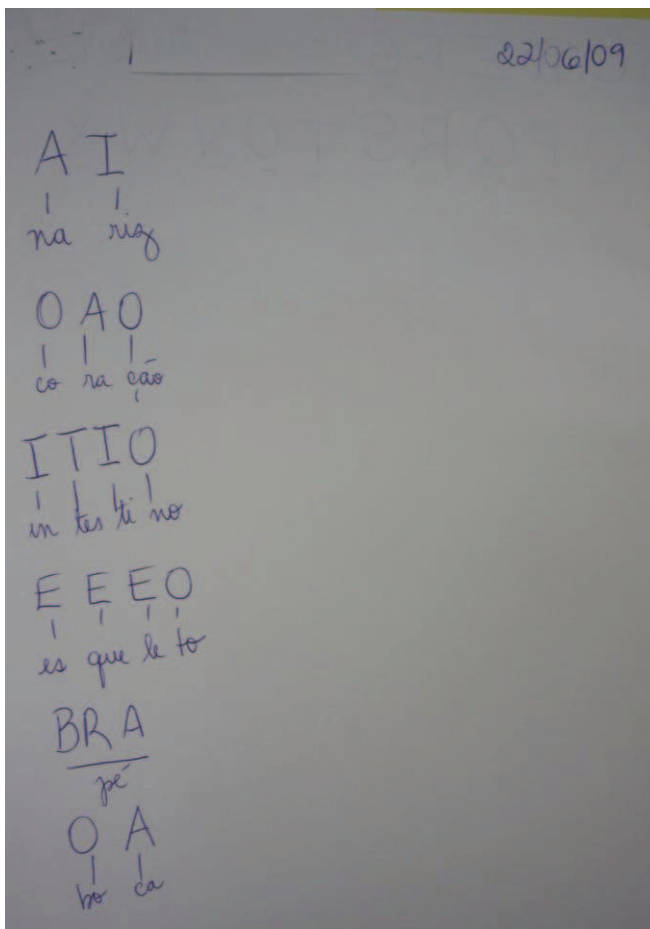 22/06/09
A I
na riz
O A O
co ra ção
I T I O
in tes ti no
E E E O
es que le to
BRA
pé
O A
bo ca